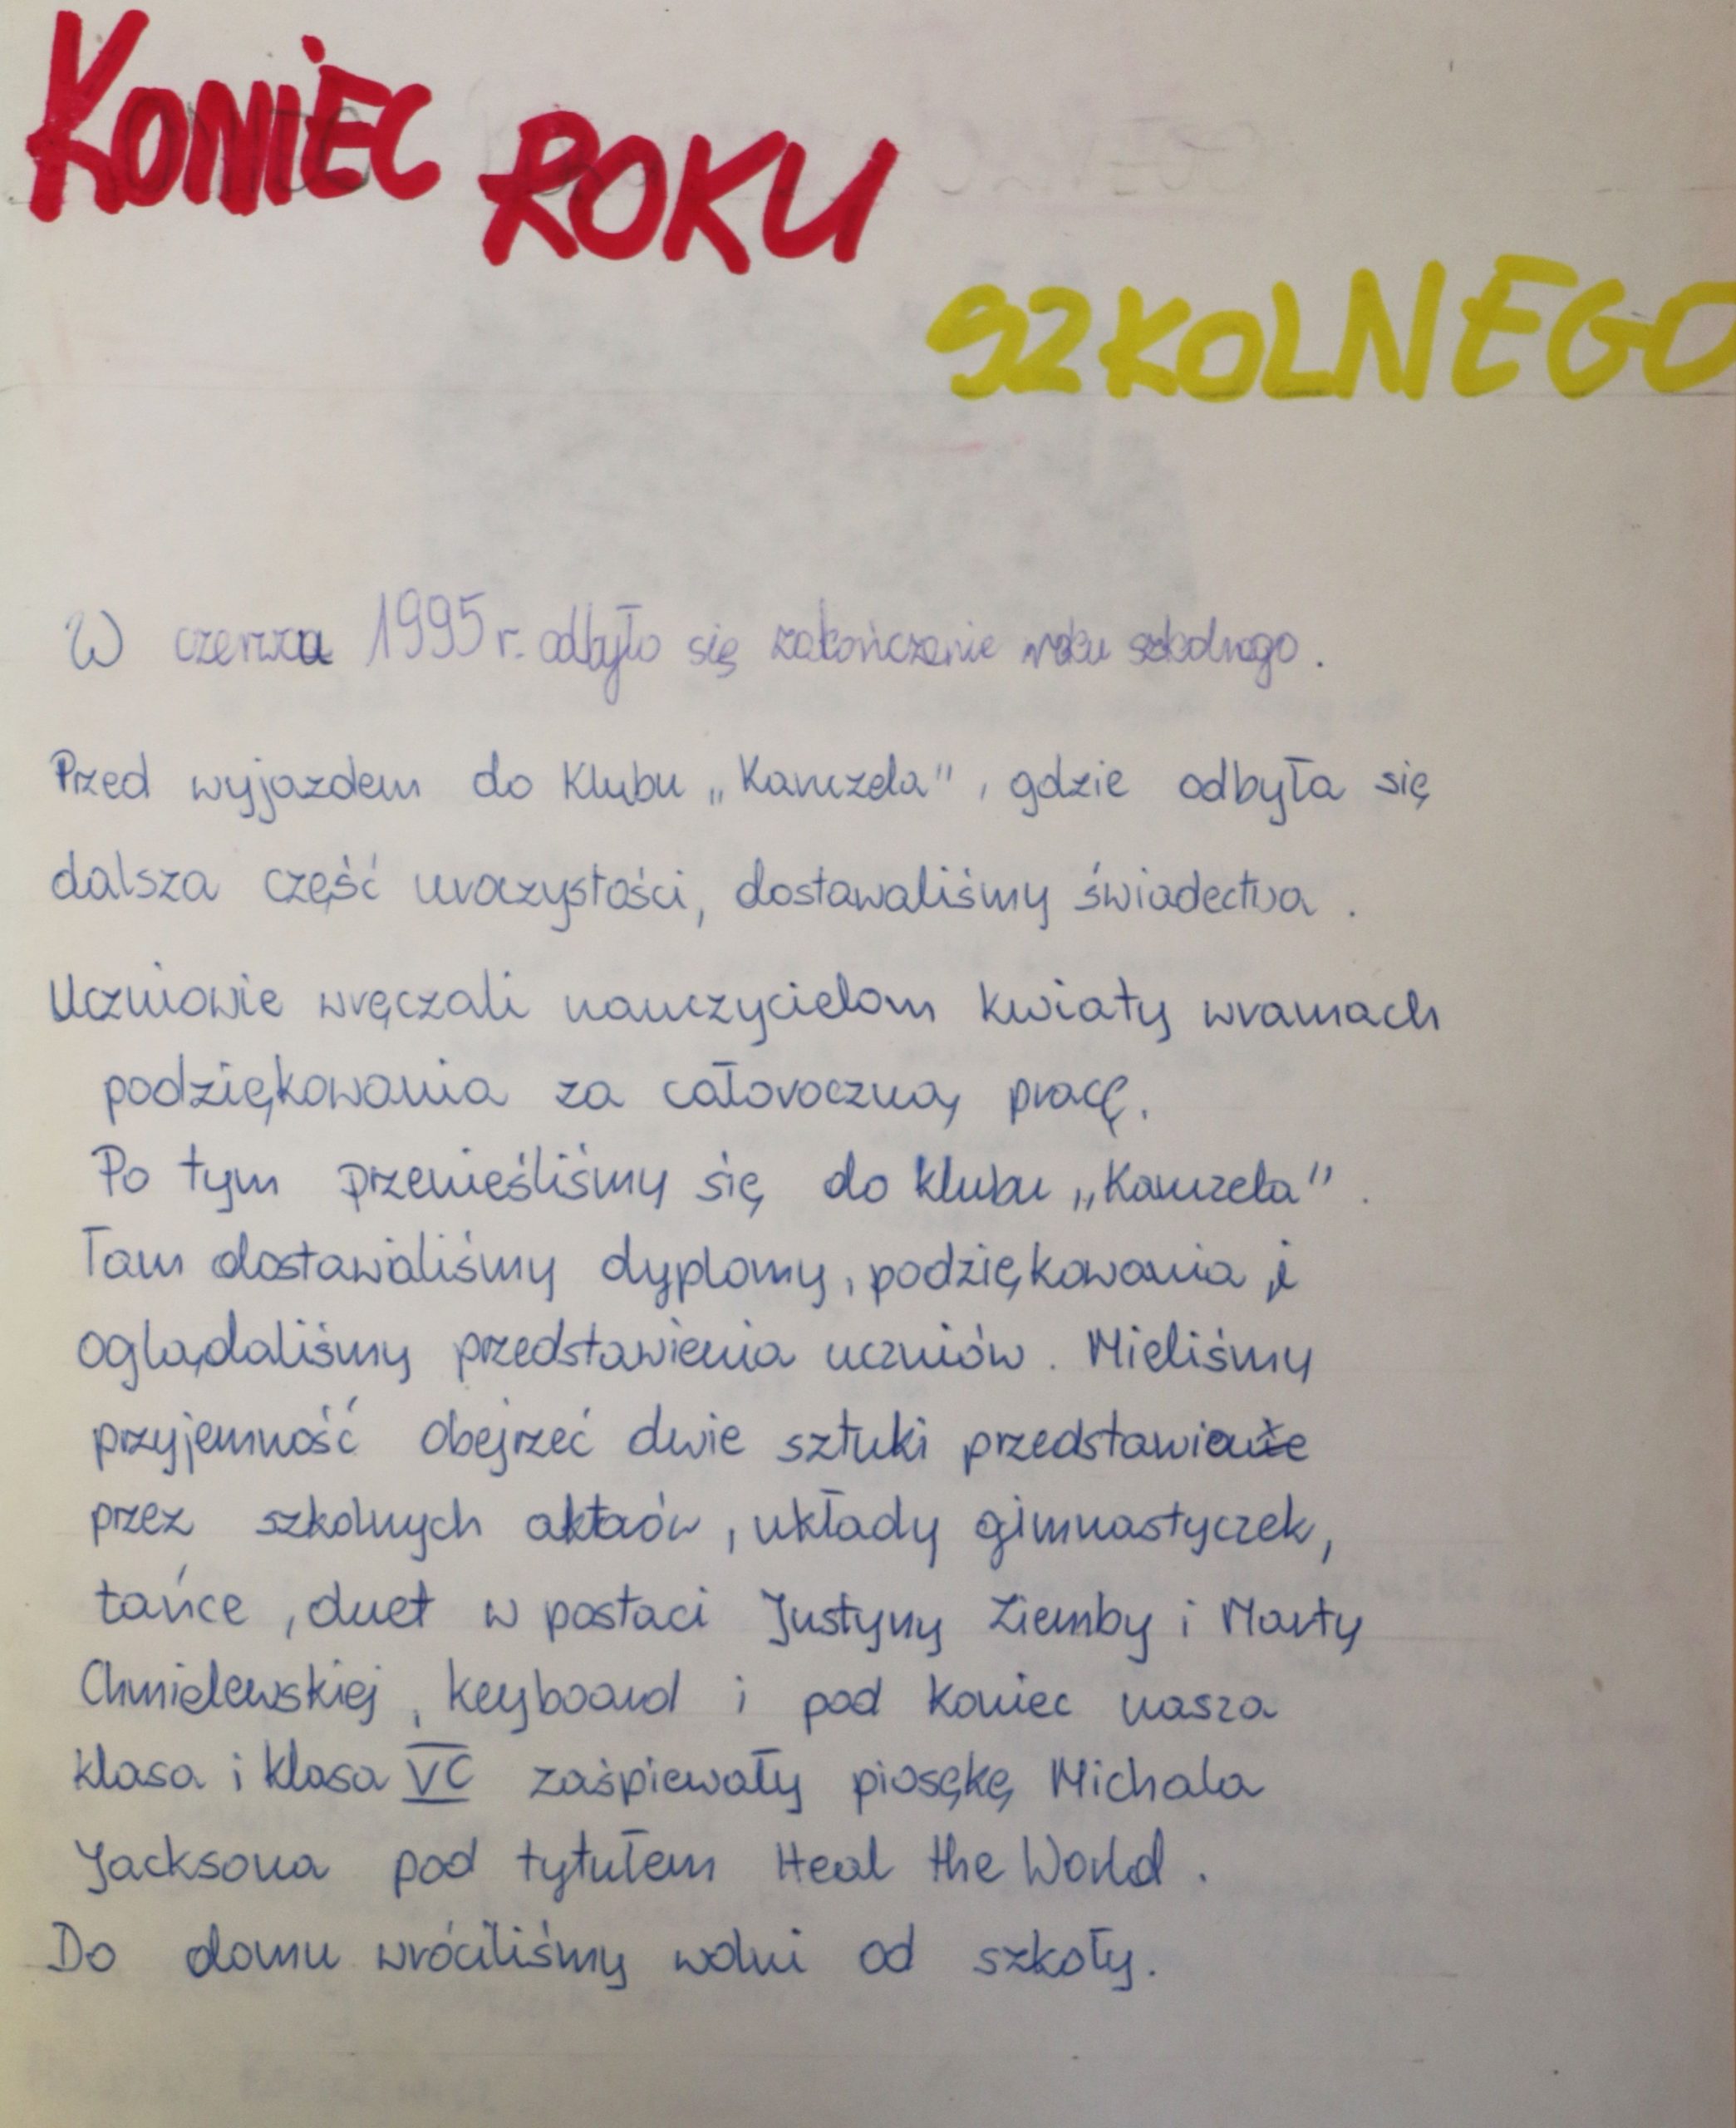 KONIEC ROKU
SZKOLNEGO
W czerwcu 1995 r. odbyło się zakończenie roku szkolnego.
Przed wyjazdem do Klubu „Karuzela", gdzie odbyła się
dalsza część uroczystości, dostawaliśmy świadectwa.
Uczniowie wręczali nauczycielom kwiaty wramach
podziękowania za całoroczną pracę.
Po tym przenieśliśmy się do klubu „Karuzela".
Tam dostawaliśmy dyplomy, podziękowania i
oglądaliśmy przedstawienia uczniów. Mieliśmy
przyjemność obejrzeć dwie sztuki przedstawione
przez szkolnych aktorów, układy gimnastyczek,
tańce, duet w postaci Justyny Ziemby i Marty
Chmielewskiej, keyboard i pod koniec nasza
klasa i klasa VC zaśpiewały piosękę Michala
Jacksona pod tytułem Heal the World.
Do domu wróciliśmy wolni od szkoły.